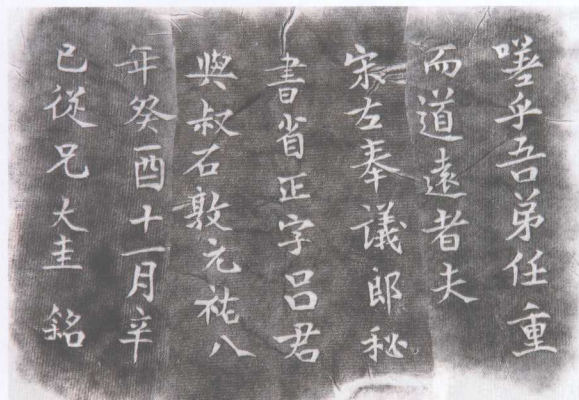 嗟乎吾弟任重
而道遠者夫
宋左奉議郎秘
書省正字呂君
與叔石敦元祐八
年癸酉十一月辛
已從兄大圭銘